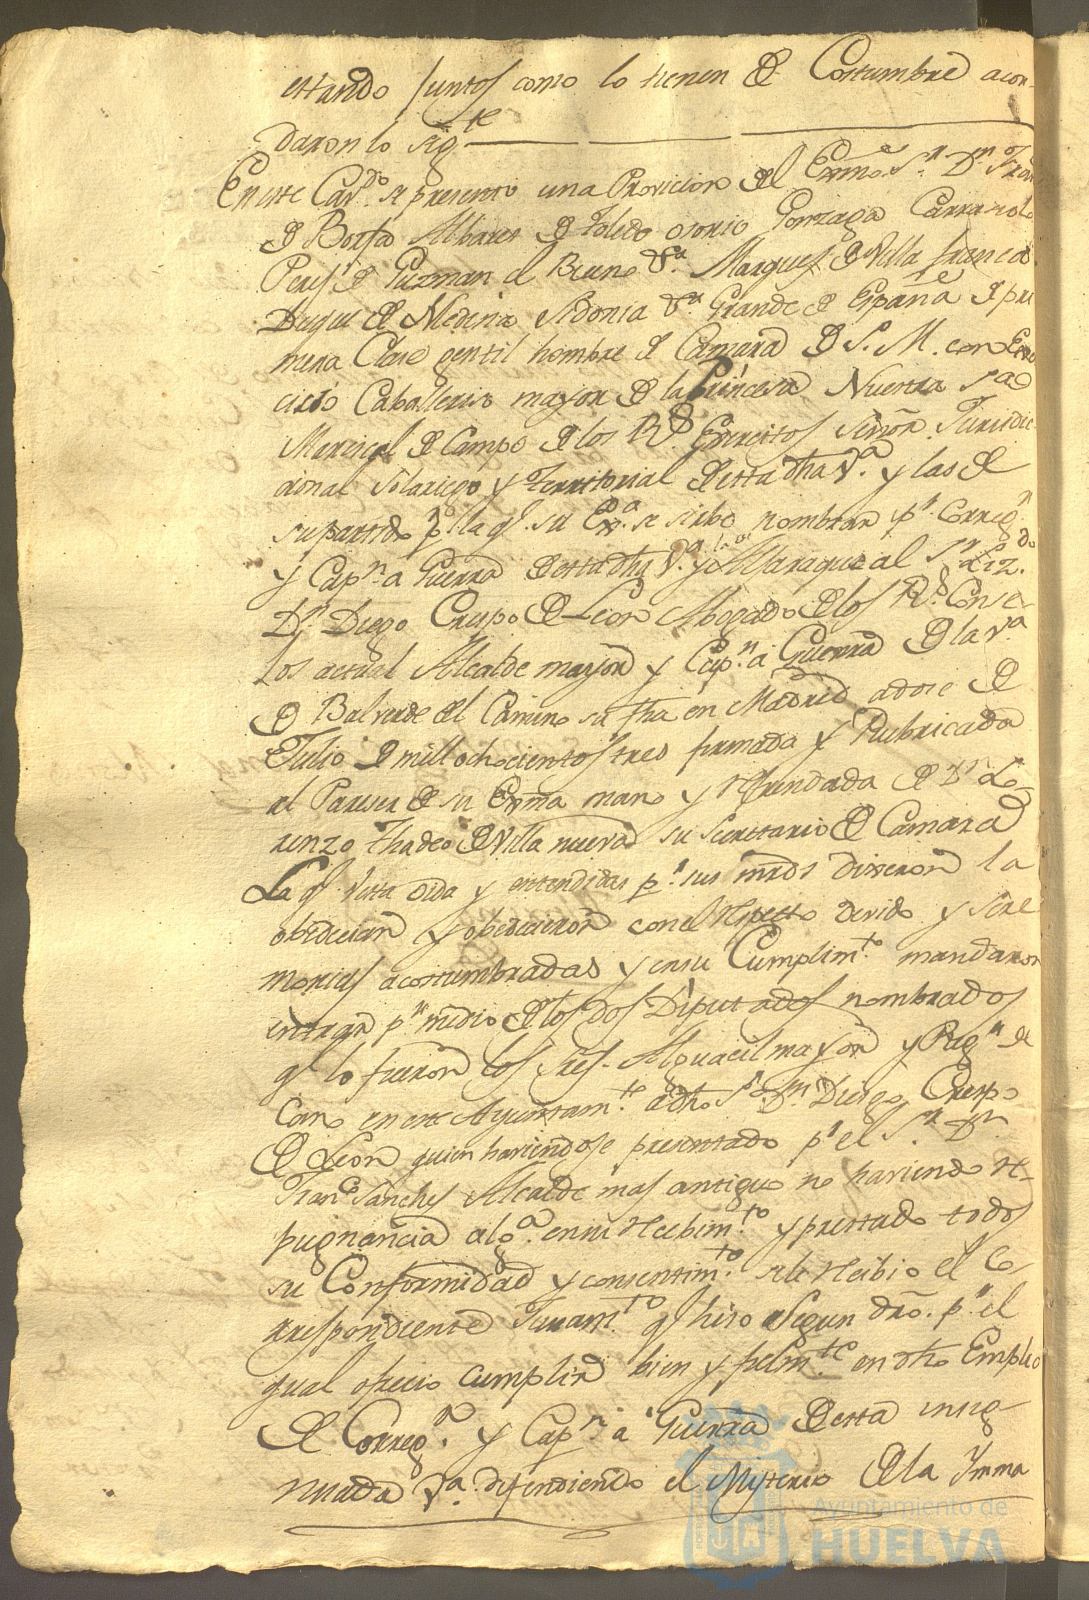 estando juntos como lo tienen de Costumbre acor-
daron lo sig.te
En este Cav.do se presento una Provicion del Exmo. S.r D.n Fran.co
de Borja Albares de Toledo osorio Gonzaga Carraciolo
Peres de Guzman el Bueno &.a Marques de Villa franca
Duque de Medina Sidonia &.a Grande de España de pri
mera Clase gentil hombre de Camara de S. M. con Exer
cicio Caballeriso mayor de la Princesa Nuestra S.ra
Mariscal de Campo de los R.s Exercitos Señor Jurisdic
cional Solariego y Territorial de esta dha V.a y las de
su partido p.r la q.l su Ex.a se sirbe nombrar p.r Correg.r
y Cap.n a Guerra de esta dha V.a y la de Aljaraque al S.r Liz.do
D.n Diego Crespo de Leon Abogado de los R.s Conse-
los actual Alcalde mayor y Cap.n a Guerra de la V.a
de Balverde del Camino su fha en Madrid a dose de
Julio de mill ochocientos tres firmada y Rubricada
al Pareser de su Exma mano y refrendada de D.n Lo-
renzo Thadeo de Villa nueva su Secrettario de Camara
La q.l vista oida y entendidas p.r sus mrds dixeron la
obedecian y obedecieron con el respecto devido y sere
monias acostumbradas y en su Cumplim.to mandaron
entrar p.r medio de los dos Diputados nombrados
q.e lo fueron los Sres. Alguacil mayor y Reg.r de
cano en este Ayuntam.to a dho S.r D.n Diego Crespo
de Leon quien haviendose presentado p.r el S.r D.n
Fran.co Sanches Alcalde mas antiguo no haviendo re-
pugnancia alg.a en su recibim.to y prestado todos
su Conformidad y consentim.to se le recibio el Co
rrespondiente Juram.to q.e hiso segun dro. p.r el
qual ofrecio cumplir bien y fielm.te en dho Empleo
de Correg.r y Cap.n a Guerra de esta insig
nuada V.a defendiendo el Misterio de la Imma
Ayuntamiento de
HUELVA